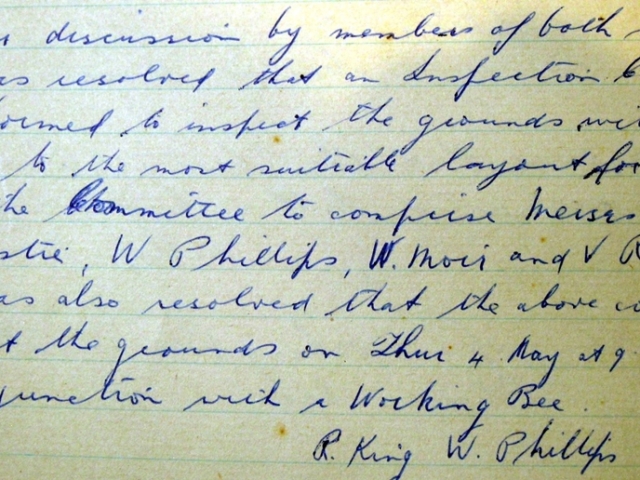 discussion by members of both
as resolved that an Inspection C
formed to inspect the grounds wit
to the most suitable layout for
he Committee to comprise Messrs
stie, W Phillips, W. Moir and V R
as also resolved that the above co
t the grounds on Thur 4 May at 9
junction with a Working Bee.
R. King W. Phillips